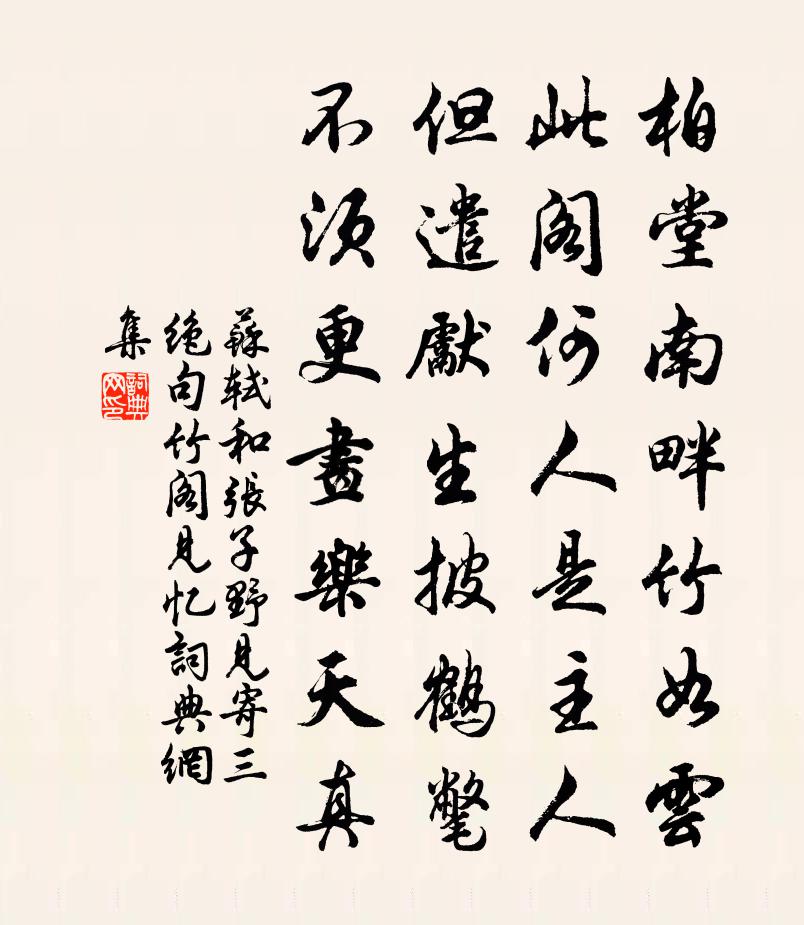 柏堂南畔竹如雲
此閣何人是主人
但遣獻生披鶴氅
不須更畫樂天真
蘇軾和張子野見寄三
絶句竹阁見忆詞典網
集
詞典
网印